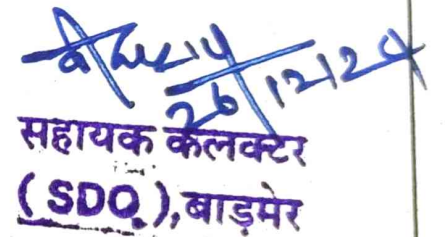 26/12/24
सहायक कलक्टर
(SDO),बाड़मेर